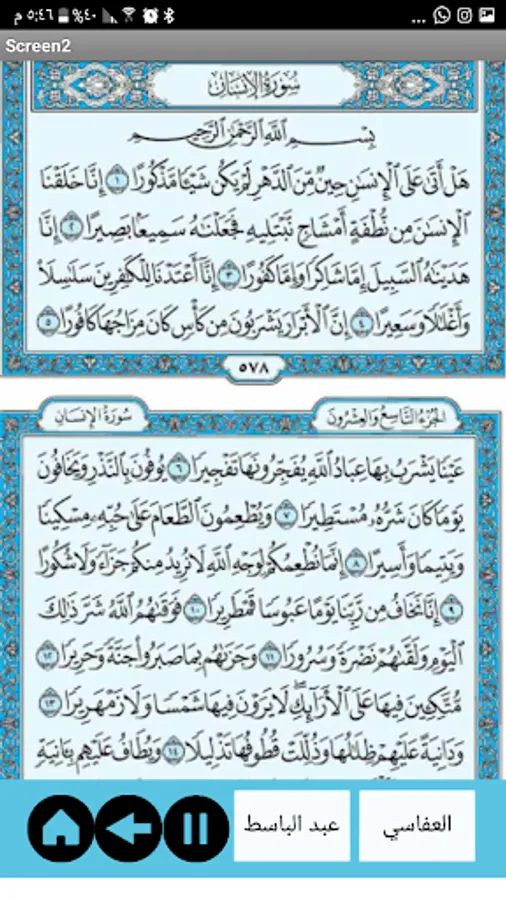 ٥:٤٦ م ٤٠٪ ...
Screen2
سُورَةُ الإِنسَانِ
بِسْمِ اللَّهِ الرَّحْمَٰنِ الرَّحِيمِ
هَلْ أَتَىٰ عَلَى الْإِنسَٰنِ حِينٌ مِّنَ الدَّهْرِ لَمْ يَكُن شَيْـًٔا مَّذْكُورًا ١ إِنَّا خَلَقْنَا
الْإِنسَٰنَ مِن نُّطْفَةٍ أَمْشَاجٍ نَّبْتَلِيهِ فَجَعَلْنَٰهُ سَمِيعًۢا بَصِيرًا ٢ إِنَّا
هَدَيْنَٰهُ السَّبِيلَ إِمَّا شَاكِرًا وَإِمَّا كَفُورًا ٣ إِنَّآ أَعْتَدْنَا لِلْكَٰفِرِينَ سَلَٰسِلَا۟
وَأَغْلَٰلًا وَسَعِيرًا ٤ إِنَّ الْأَبْرَارَ يَشْرَبُونَ مِن كَأْسٍ كَانَ مِزَاجُهَا كَافُورًا ٥
٥٧٨
الجُزْءُ التَّاسِعُ وَالعِشْرُونَ سُورَةُ الإِنسَانِ
عَيْنًا يَشْرَبُ بِهَا عِبَادُ اللَّهِ يُفَجِّرُونَهَا تَفْجِيرًا ٦ يُوفُونَ بِالنَّذْرِ وَيَخَافُونَ
يَوْمًا كَانَ شَرُّهُۥ مُسْتَطِيرًا ٧ وَيُطْعِمُونَ الطَّعَامَ عَلَىٰ حُبِّهِۦ مِسْكِينًا
وَيَتِيمًا وَأَسِيرًا ٨ إِنَّمَا نُطْعِمُكُمْ لِوَجْهِ اللَّهِ لَا نُرِيدُ مِنكُمْ جَزَآءً وَلَا شُكُورًا
٩ إِنَّا نَخَافُ مِن رَّبِّنَا يَوْمًا عَبُوسًا قَمْطَرِيرًا ١٠ فَوَقَىٰهُمُ اللَّهُ شَرَّ ذَٰلِكَ
الْيَوْمِ وَلَقَّىٰهُمْ نَضْرَةً وَسُرُورًا ١١ وَجَزَىٰهُم بِمَا صَبَرُوا۟ جَنَّةً وَحَرِيرًا ١٢
مُّتَّكِـِٔينَ فِيهَا عَلَى الْأَرَآئِكِ ۖ لَا يَرَوْنَ فِيهَا شَمْسًا وَلَا زَمْهَرِيرًا ١٣
وَدَانِيَةً عَلَيْهِمْ ظِلَٰلُهَا وَذُلِّلَتْ قُطُوفُهَا تَذْلِيلًا ١٤ وَيُطَافُ عَلَيْهِم بِـَٔانِيَةٍ
العفاسي
عبد الباسط